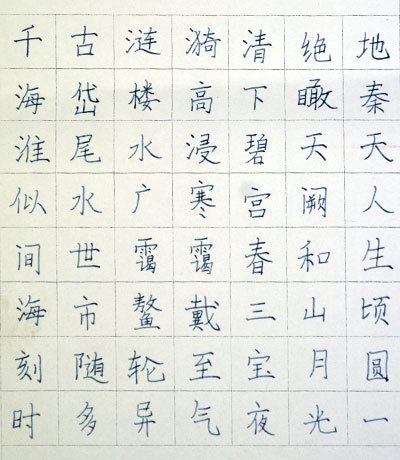 千古涟漪清绝地
海岱楼高下瞰秦
淮尾水浸碧天天
似水广寒宫阙人
间世霭霭春和生
海市鳌戴三山顷
刻随轮至宝月圆
时多异气夜光一